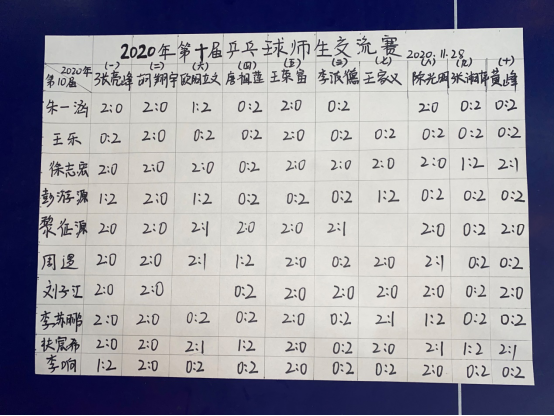 2020年第十届乒乓球师生交流赛 2020.11.28
(一) (二) (六) (四) (五) (三) (七) (八) (九) (十)
2020年 第10届 张亮峰 胡翔宇 欧阳立文 唐祖莲 王荣富 李派儒 王家义 陈光明 张湘 黄峰
朱一涵 2:0 2:0 1:2 0:2 2:0 0:2 2:0 0:2 0:2
王乐 0:2 2:0 0:2 0:2 0:2 0:2 0:2 0:2 0:2 0:2
徐志宏 2:0 2:0 2:0 0:2 2:0 2:0 2:0 2:0 1:2 2:1
彭游源 1:2 2:0 1:2 0:2 0:2 0:2 1:2 0:2 0:2 0:2
黎征源 2:0 2:0 2:1 2:0 2:0 2:1 2:0 0:2 2:0
周 2:0 2:0 2:1 1:2 2:0 0:2 2:0 2:1 0:2 0:2
刘子江 2:0 2:0 0:2 2:0 2:0 2:0 2:0 0:2 2:0
李苏鹏 2:0 2:0 0:2 0:2 2:0 0:2 2:1 1:2 0:2 0:2
扶宸布 2:0 2:0 2:1 1:2 2:0 0:2 2:0 2:1 1:2 2:1
李响 1:2 2:0 0:2 0:2 0:2 0:2 0:2 2:0 0:2 0:2